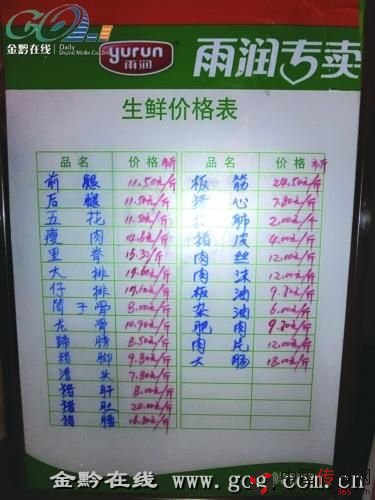 金黔在线
Daily
Digital Media
yurun
雨润
雨润专卖
生鲜价格表
品名 价格 品名 价格
前腿 11.50元/斤 板筋 24.50元/斤
后腿 11.50元/斤 猪心 7.80元/斤
五花 11.50元/斤 肺 2.00元/斤
瘦肉 14.80元/斤 猪皮 4.00元/斤
里脊 15.30/斤 肉丝 12.00元/斤
大排 元/斤 肉沫 12.00元/斤
仔排 元/斤 板油 9.80元/斤
筒子骨 8.00元/斤 杂油 6.00元/斤
龙骨 10.90元/斤 肥肉 元/斤
蹄膀 8.50元/斤 肉片 12.00元/斤
猪脚 9.80元/斤 大肠 18.00元/斤
头 7.80元/斤
猪肝 8.00元/斤
猪肚 20.00元/斤
猪腰 元/斤
金黔在线 www.gog.com.cn
365.com